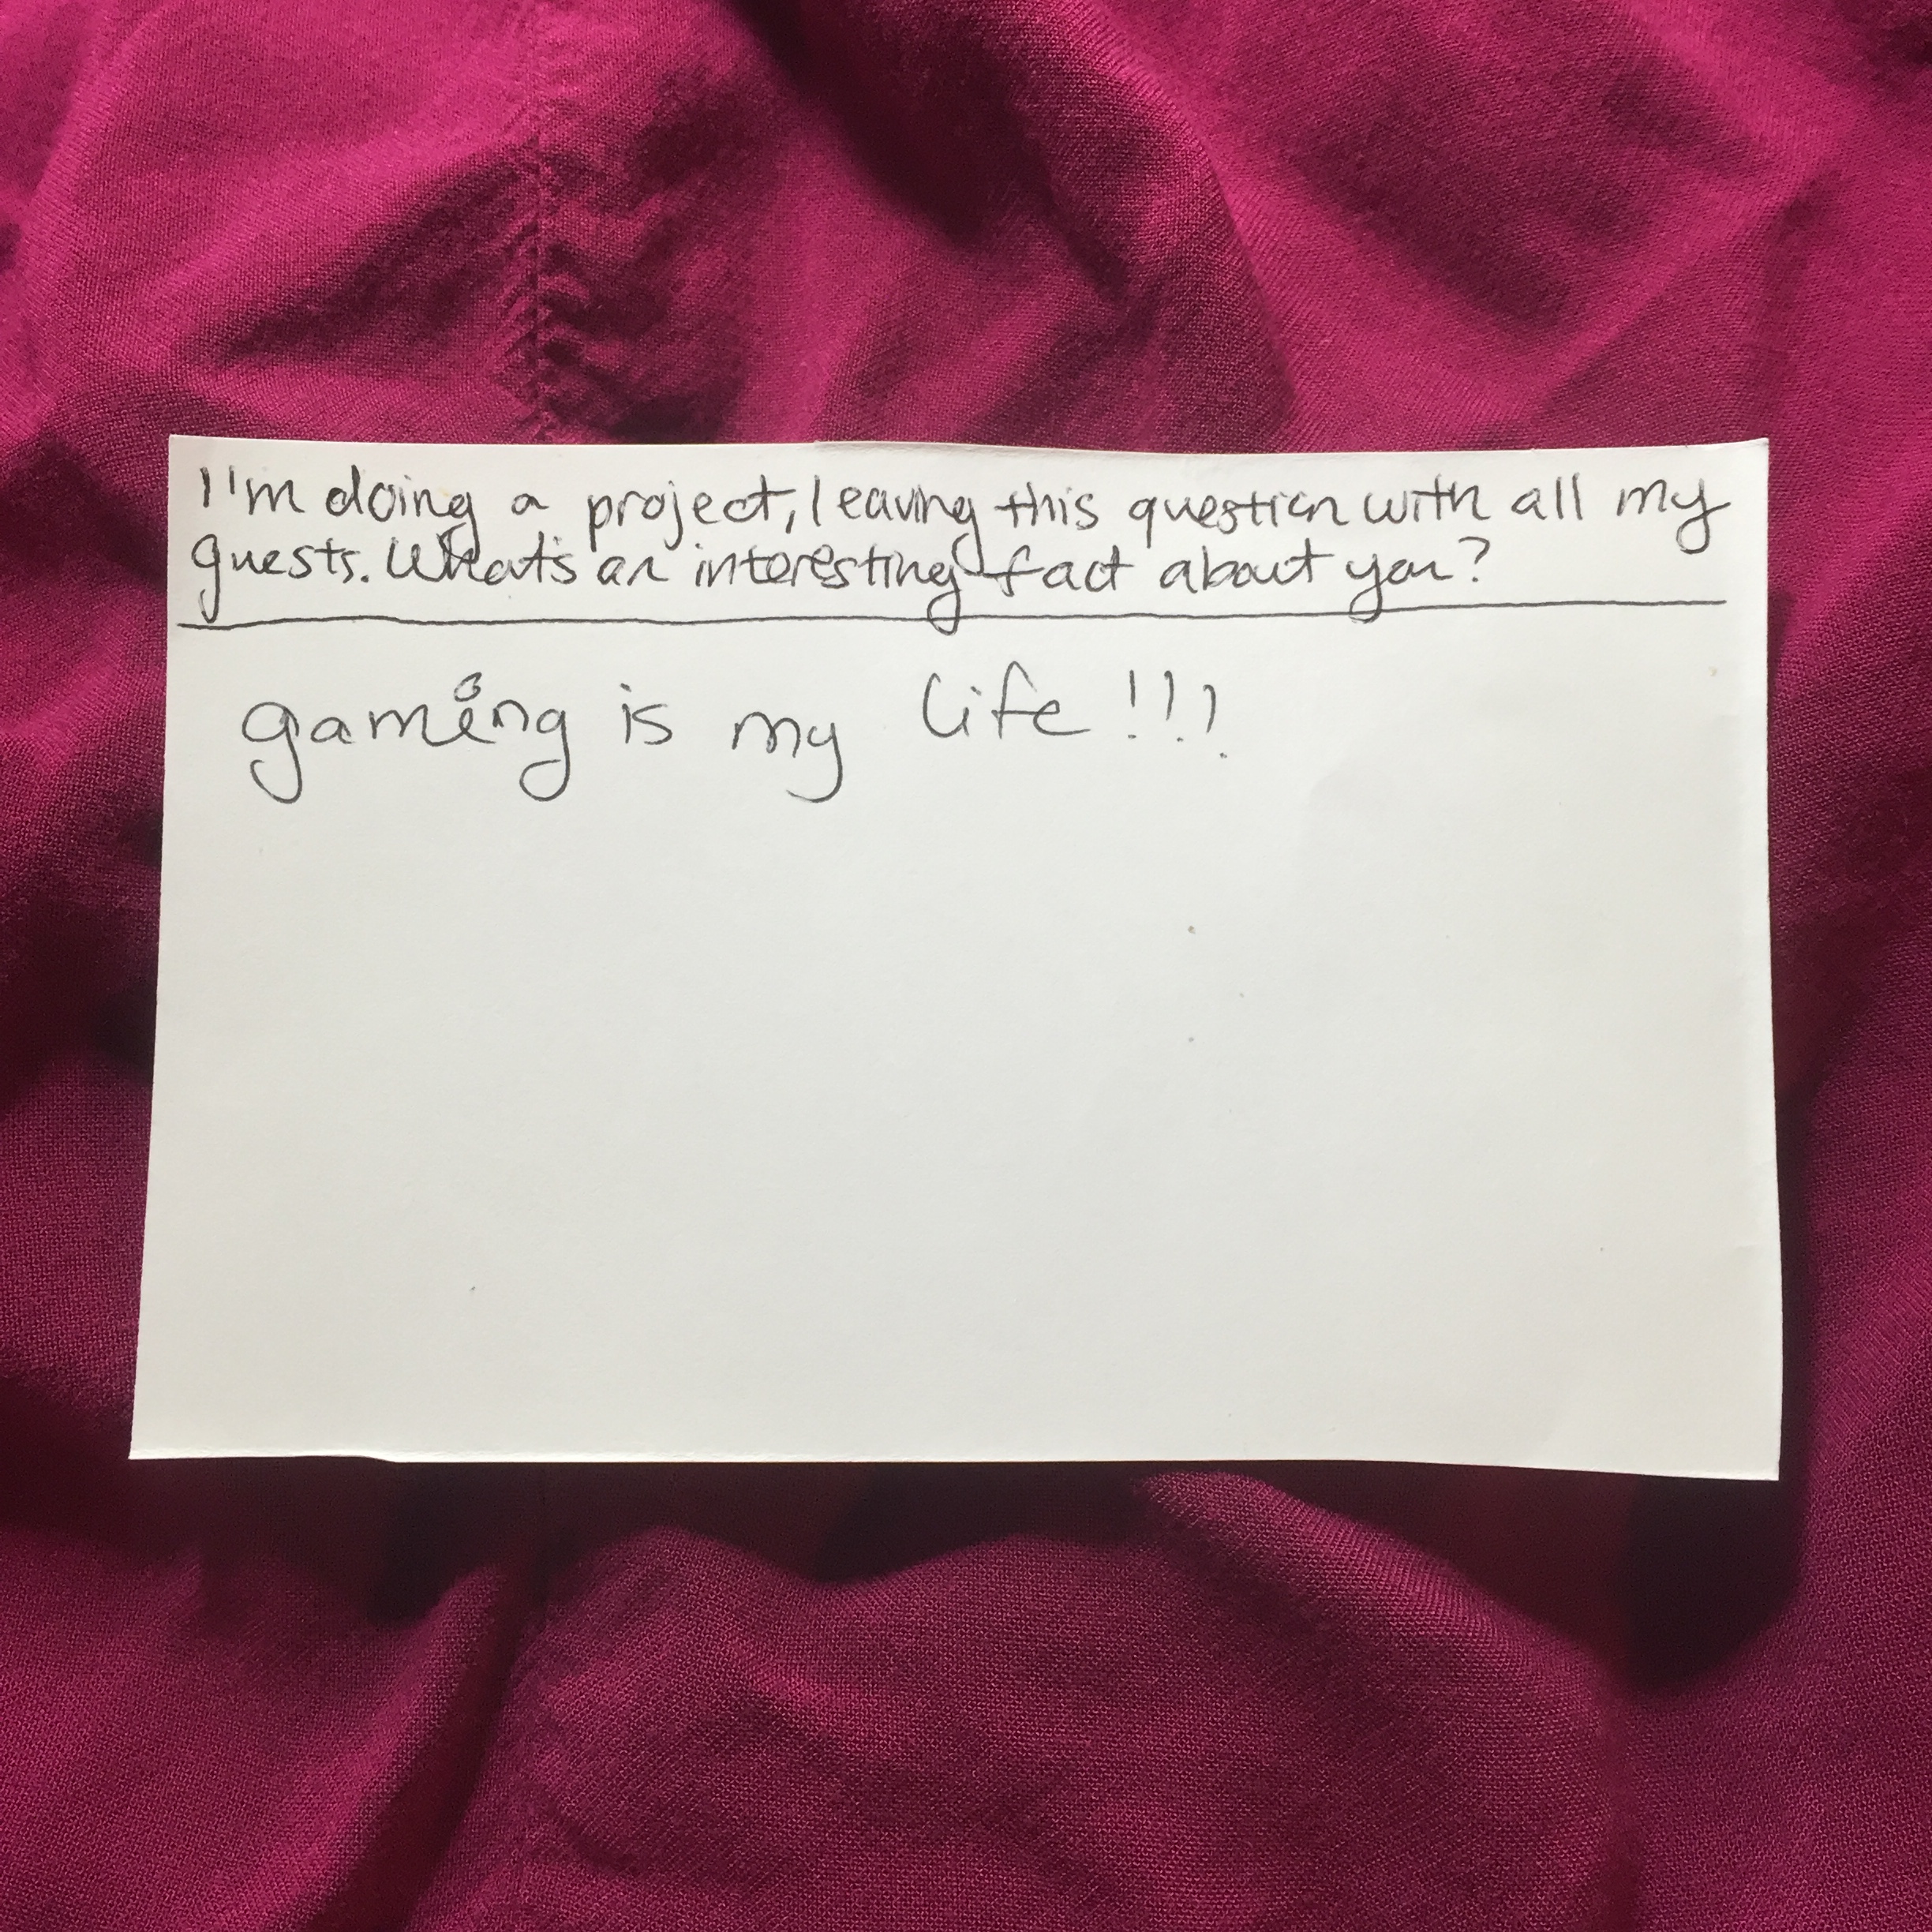 I'm doing a project, leaving this question with all my
guests. What's an interesting fact about you?
gaming is my life!!!